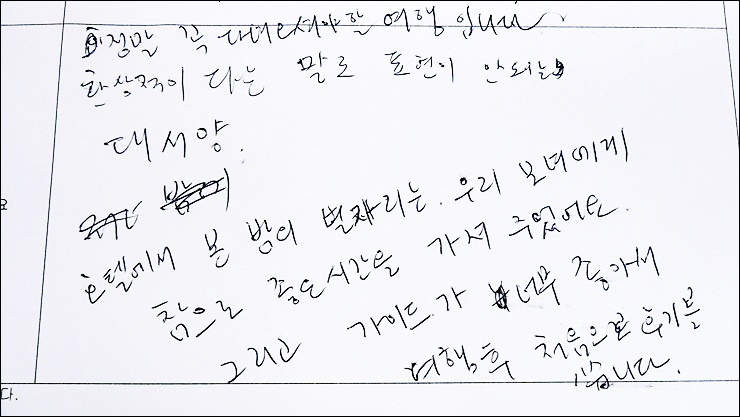 정말 꼭 다녀오셔야할 여행 입니다.
환상적이 다는 말로 표현이 안되는
대서양.
호텔에서 본 밤의 별자리는. 우리 모녀에게
참으로 좋은시간을 가져 주었어요.
그리고 가이드가 너무 좋아서
여행후 처음으로 후기를
씁니다.
다.